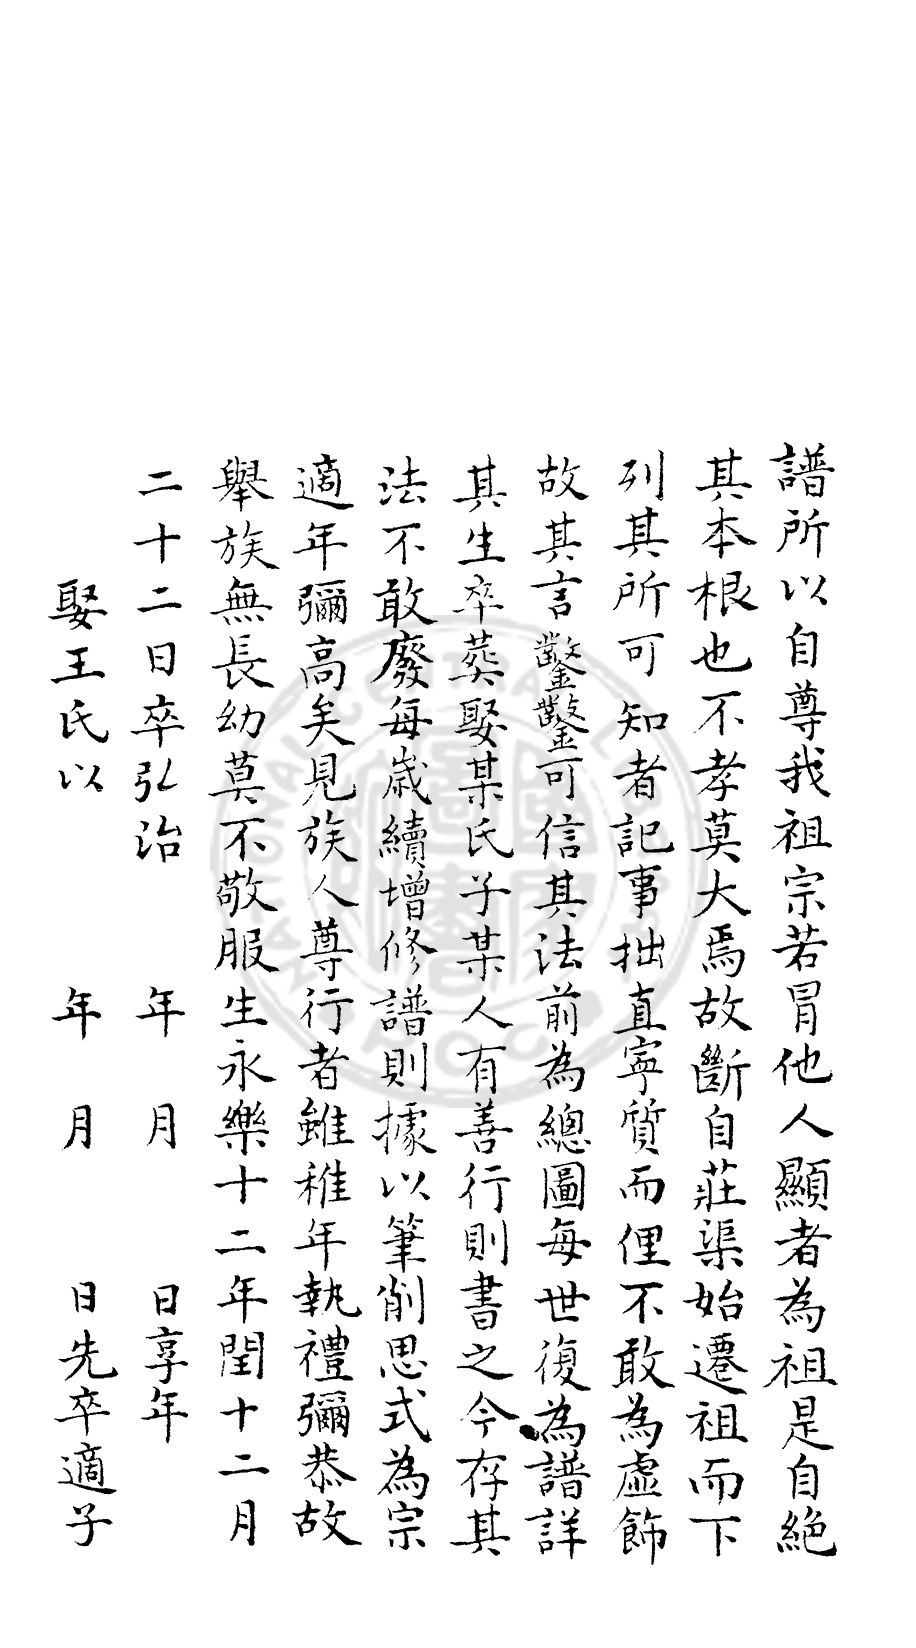 譜所以自尊我祖宗若冒他人顯者為祖是自絕
其本根也不孝莫大焉故斷自莊渠始遷祖而下
列其所可知者記事拙直寧質而俚不敢為虛飾
故其言鑿鑿可信其法前為總圖每世復為譜詳
其生卒葬娶某氏子某人有善行則書之今存其
法不敢廢每歲續增修譜則據以筆削思式為宗
適年彌高矣見族人尊行者雖稚年執禮彌恭故
舉族無長幼莫不敬服生永樂十二年閏十二月
二十二日卒弘治　　年　月　　日享年
娶王氏以　　　年　月　　日先卒適子